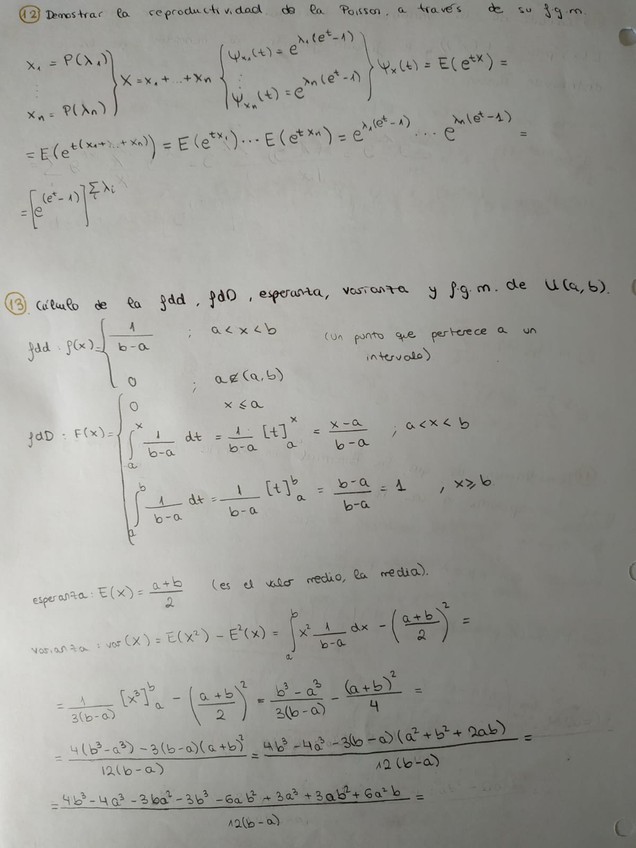 (12) Demostrar la reproductividad de la Poisson, a través de su f.g.m.
x₁ = P(λ₁)
xₙ = P(λₙ) } X = x₁ + ... + xₙ { Ψx₁(t) = e^{λ₁(e^t-1)} ⋮ Ψxₙ(t) = e^{λₙ(e^t-1)} } Ψx(t) = E(e^{tx}) =
= E(e^{t(x₁+...+xₙ)}) = E(e^{tx₁}) ··· E(e^{txₙ}) = e^{λ₁(e^t-1)} ··· e^{λₙ(e^t-1)} =
= [e^{(e^t-1)}]^{Σλᵢ}
(13) Cálculo de la fdd, fdD, esperanza, varianza y f.g.m. de U(a,b).
fdd: f(x) = { 1/(b-a) ; a < x < b (un punto que pertenece a un intervalo)
0 ; a ∉ (a,b)
fdD: F(x) = { 0 x ≤ a
∫ₐˣ 1/(b-a) dt = 1/(b-a) [t]ₐˣ = (x-a)/(b-a) ; a < x < b
∫ₐᵇ 1/(b-a) dt = 1/(b-a) [t]ₐᵇ = (b-a)/(b-a) = 1 , x ≥ b
esperanza: E(x) = (a+b)/2 (es el valor medio, la media).
varianza: var(X) = E(x²) - E²(x) = ∫ₐᵇ x² 1/(b-a) dx - ((a+b)/2)² =
= 1/(3(b-a)) [x³]ₐᵇ - ((a+b)/2)² = (b³-a³)/(3(b-a)) - (a+b)²/4 =
= (4(b³-a³) - 3(b-a)(a+b)²)/(12(b-a)) = (4b³-4a³-3(b-a)(a²+b²+2ab))/(12(b-a)) =
= (4b³-4a³-3ba²-3b³-6ab²+3a³+3ab²+6a²b)/(12(b-a)) =